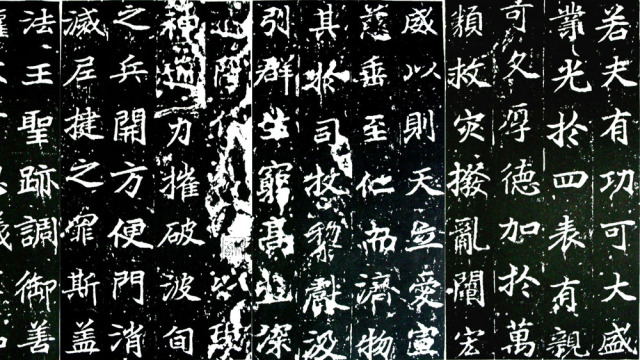 若夫有功可大盛
業光於四表有親
可久厚德加於萬
類救灾撥亂闡宏
威以則天立愛宣
慈垂至仁而濟物
其非司牧黎獻汲
引群生窮高深
以現
神通力摧破波旬
之兵開方便門消
滅尼揵之罪斯盖
法王聖跡調御善